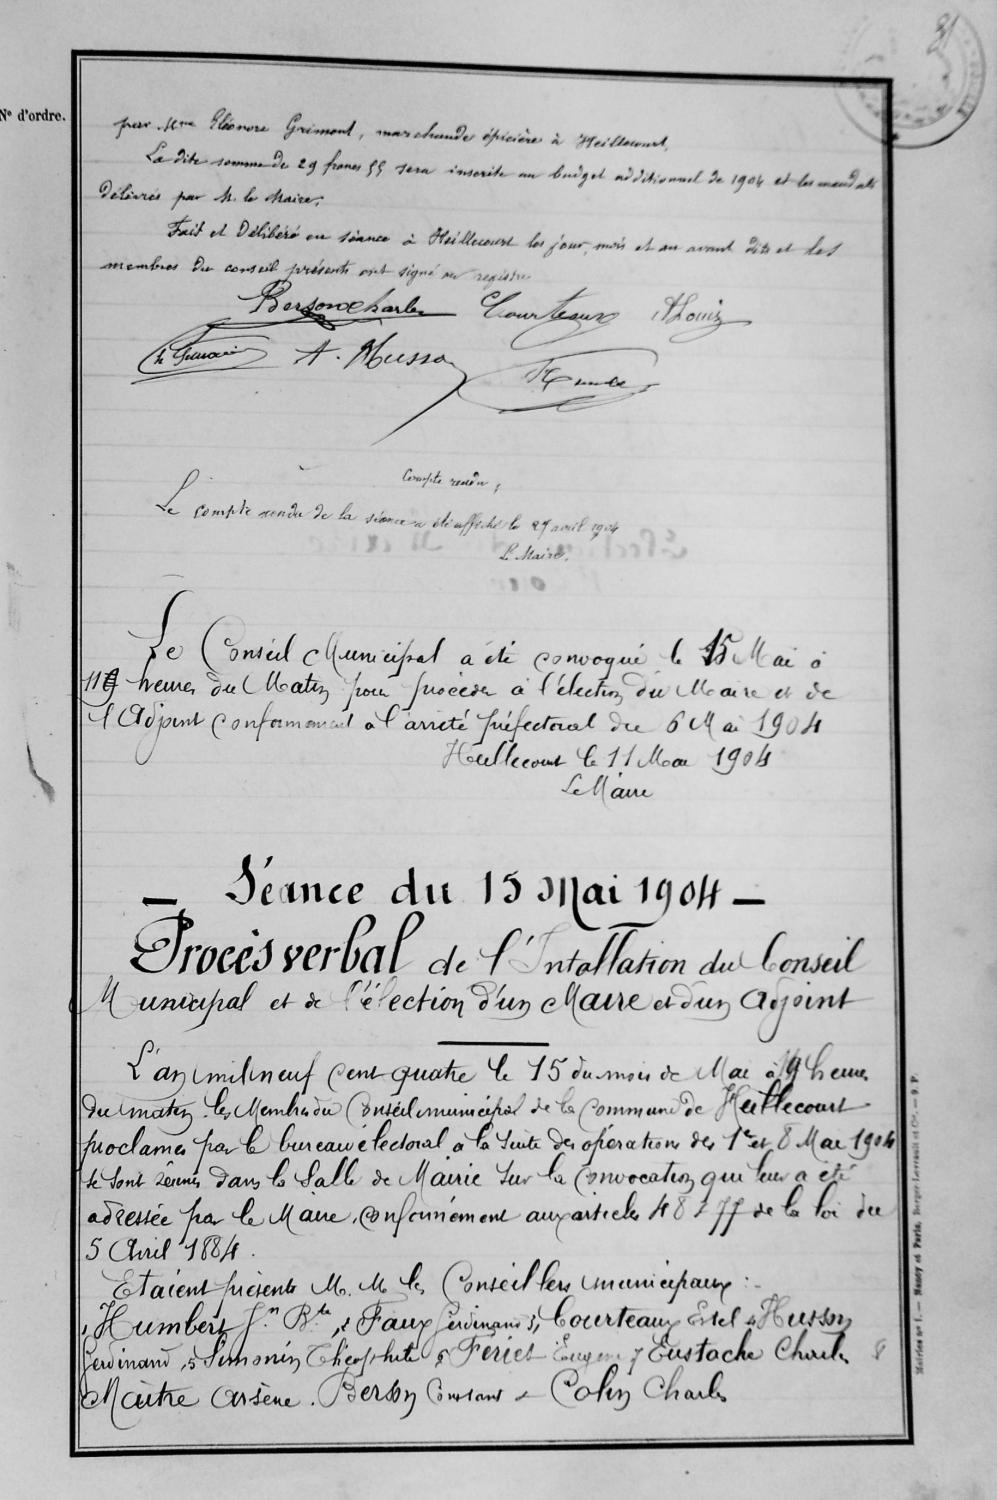 31
N° d'ordre.
par Mme Eléonore Grimont, marchande épicière à Heillecourt,
La dite somme de 29 francs 55 sera inscrite au budget additionnel de 1904 et les mandats
délivrés par M. le Maire.
Fait et Délibéré en séance à Heillecourt les jour, mois et an avant dits et les
membres du conseil présents ont signé au registre
Berson Charles Courteaux A Louis
A. Husson
Compte rendu,
Le compte rendu de la séance a été affiché le 27 avril 1904
Le Maire.
Le Conseil Municipal a été convoqué le 15 Mai à
11 heures du Matin pour procéder à l'élection du Maire et de
l'Adjoint conformément à l'arrêté préfectoral du 6 Mai 1904
Heillecourt le 11 Mai 1904
Le Maire
— Séance du 15 Mai 1904 —
Procès verbal de l'Intallation du Conseil
Municipal et de l'élection d'un Maire et d'un adjoint
L'an mil neuf cent quatre le 15 du mois de Mai à heures
du matin les Membres du Conseil municipal de la commune de Heillecourt
proclamés par le bureau électoral à la suite des opérations des 1er et 8 Mai 1904
se sont réunis dans la Salle de Mairie sur la convocation qui leur a été
adressée par le Maire, conformément aux articles 48 & 77 de la loi du
5 Avril 1884.
Etaient présents M. M. les Conseillers municipaux :
1, Humbert Jn Bte, 2 Faux Ferdinand 3, Courteaux Estel 4 Husson
Ferdinand, 5 Simonin Théophile 6 Feriet Eugène 7 Eustache Charles 8
Maître Arsène. Berson Constant & Colin Charles
Mairies n° 1. — Nancy et Paris, Berger-Levrault et Cie. — 9. P.